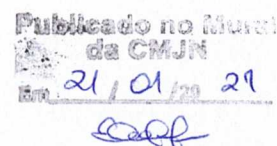 Publicado no Mural
da CMJN
Em 21 / 01 /20 21